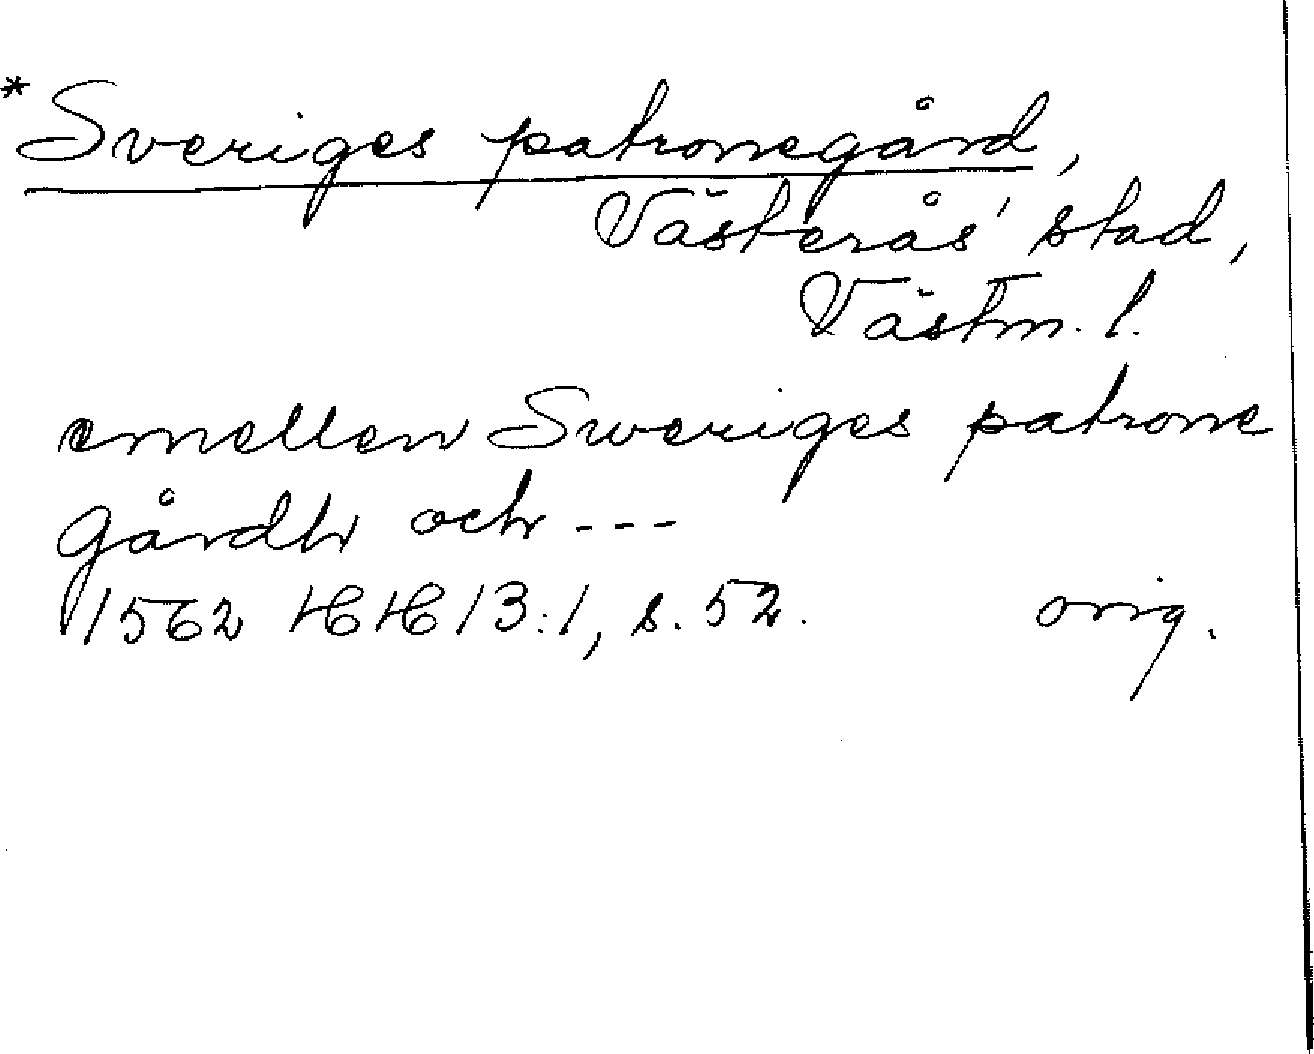 *Sveriges patronegård,
Västerås' stad,
Västm. l.
emellen Sweriges patrone
gårdh och ---
1562 HH 13:1, s. 52. orig.